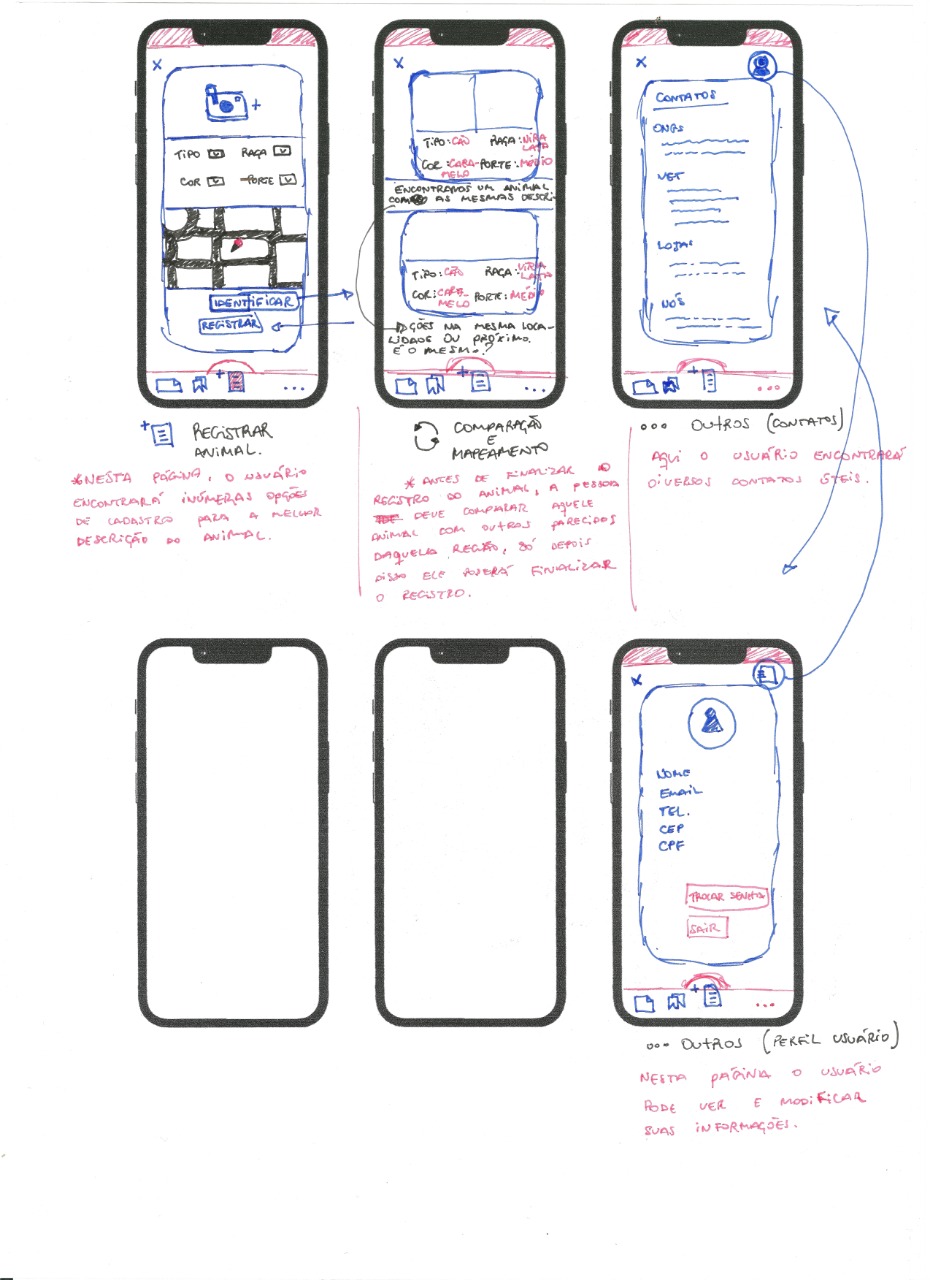 X
+
TIPO RAÇA
COR PORTE
IDENTIFICAR
REGISTRAR
+
...
+ REGISTRAR
ANIMAL.
*NESTA PÁGINA, O USUÁRIO
ENCONTRARÁ INÚMERAS OPÇÕES
DE CADASTRO PARA A MELHOR
DESCRIÇÃO DO ANIMAL.
X
TIPO: CÃO RAÇA: VIRA
LATA
COR: CARA- PORTE: MÉDIO
MELO
ENCONTRAMOS UM ANIMAL
COM AS MESMAS DESCRI-
TIPO: CÃO RAÇA: VIRA
LATA
COR: CARA- PORTE: MÉDIO
MELO
OPÇÕES NA MESMA LOCA-
LIDADE OU PRÓXIMO.
É O MESMO?
+
...
COMPARAÇÃO
E
MAPEAMENTO
* ANTES DE FINALIZAR O
REGISTRO DO ANIMAL, A PESSOA
DEVE COMPARAR AQUELE
ANIMAL COM OUTROS PARECIDOS
DAQUELA REGIÃO, SÓ DEPOIS
DISSO ELE PODERÁ FINALIZAR
O REGISTRO.
X
CONTATOS
ONGS
VET
LOJAS
NÓS
+
...
... OUTROS (CONTATOS)
AQUI O USUÁRIO ENCONTRARÁ
DIVERSOS CONTATOS ÚTEIS.
X
NOME
EMAIL
TEL.
CEP
CPF
TROCAR SENHA
SAIR
+
...
... OUTROS (PERFIL USUÁRIO)
NESTA PÁGINA O USUÁRIO
PODE VER E MODIFICAR
SUAS INFORMAÇÕES.